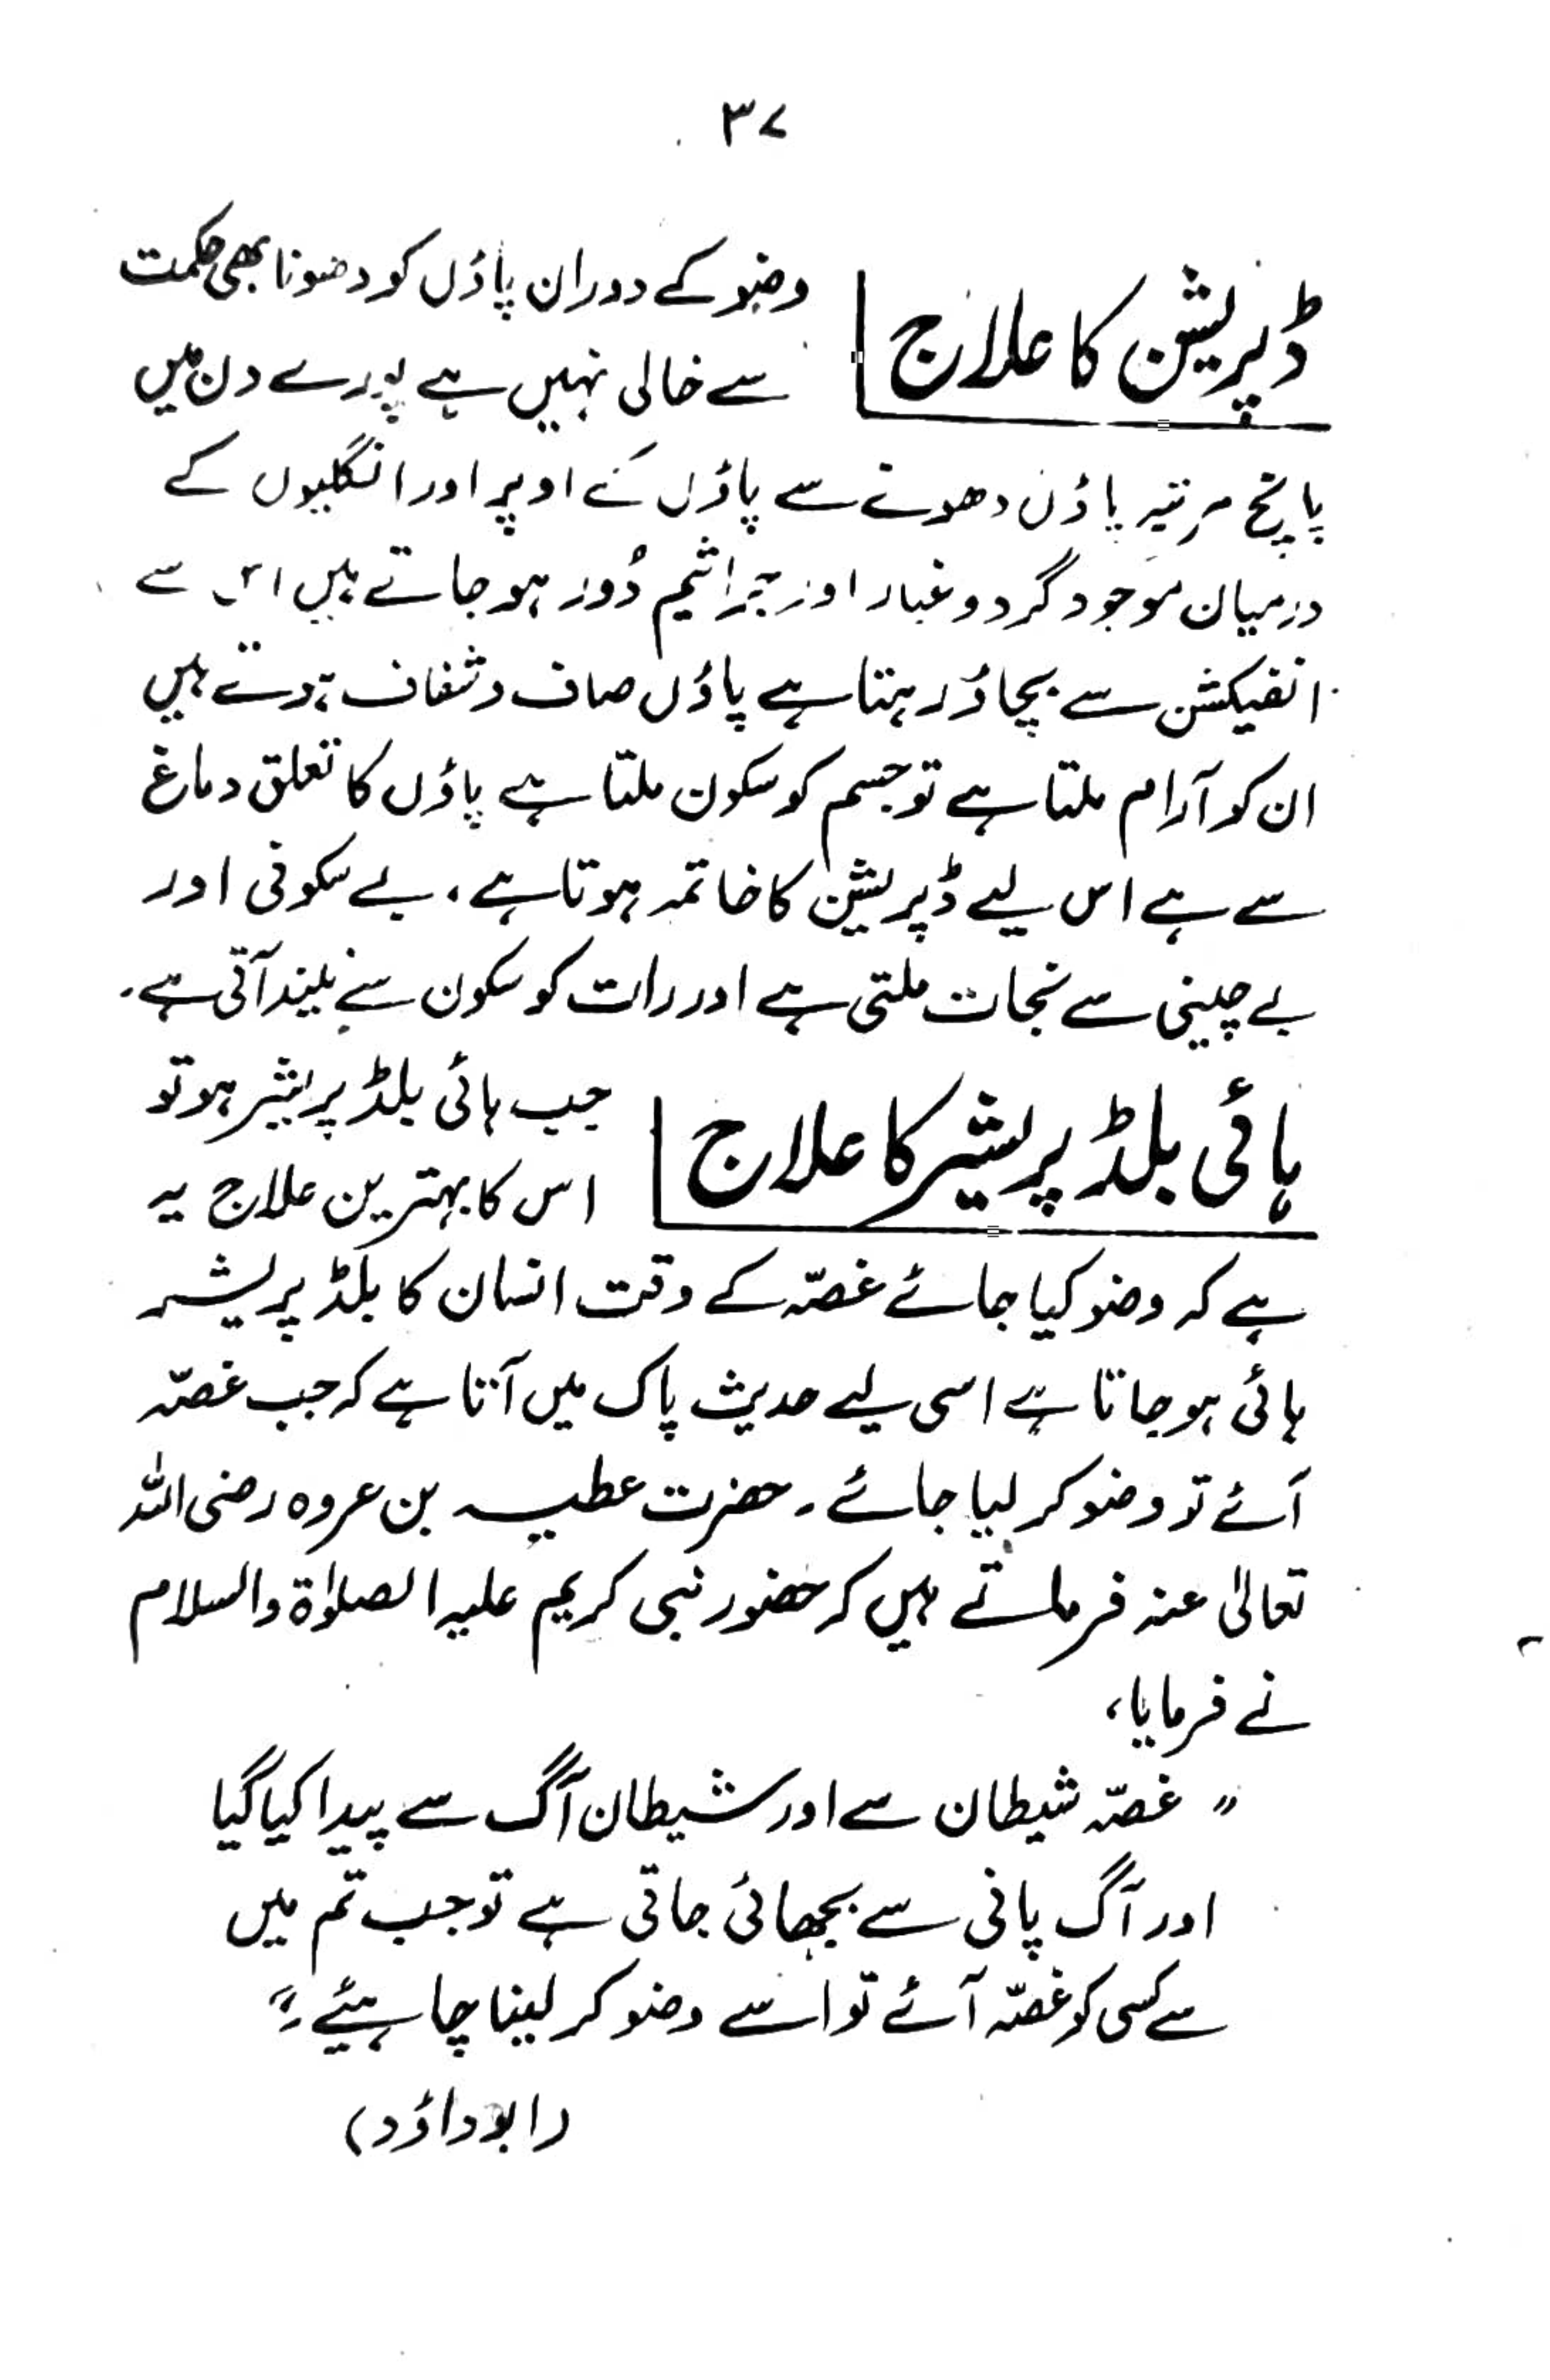 ۳۷
ڈپریشن کا علاج
وضو کے دوران پاؤں کو دھونا بھی حکمت
سے خالی نہیں ہے پورے دن میں
پانچ مرتبہ پاؤں دھونے سے پاؤں کے اوپر اور انگلیوں کے
درمیان موجود گرد و غبار اور جراثیم دُور ہو جاتے ہیں اس سے
انفیکشن سے بچاؤ رہتا ہے پاؤں صاف و شفاف ہوتے ہیں
ان کو آرام ملتا ہے تو جسم کو سکون ملتا ہے پاؤں کا تعلق دماغ
سے ہے اس لیے ڈپریشن کا خاتمہ ہوتا ہے، بے سکونی اور
بے چینی سے نجات ملتی ہے اور رات کو سکون سے نیند آتی ہے۔
ہائی بلڈ پریشر کا علاج
جب ہائی بلڈ پریشر ہو تو
اس کا بہترین علاج یہ
ہے کہ وضو کیا جائے غصّہ کے وقت انسان کا بلڈ پریشر
ہائی ہو جاتا ہے اسی لیے حدیث پاک میں آتا ہے کہ جب غصّہ
آئے تو وضو کر لیا جائے۔ حضرت عطیہ بن عروہ رضی اللہ
تعالیٰ عنہ فرماتے ہیں کہ حضور نبی کریم علیہ الصلوٰۃ والسلام
نے فرمایا،
"غصّہ شیطان سے اور شیطان آگ سے پیدا کیا گیا
اور آگ پانی سے بجھائی جاتی ہے تو جب تم میں
سے کسی کو غصّہ آئے تو اسے وضو کر لینا چاہیئے۔"
(ابوداؤد)